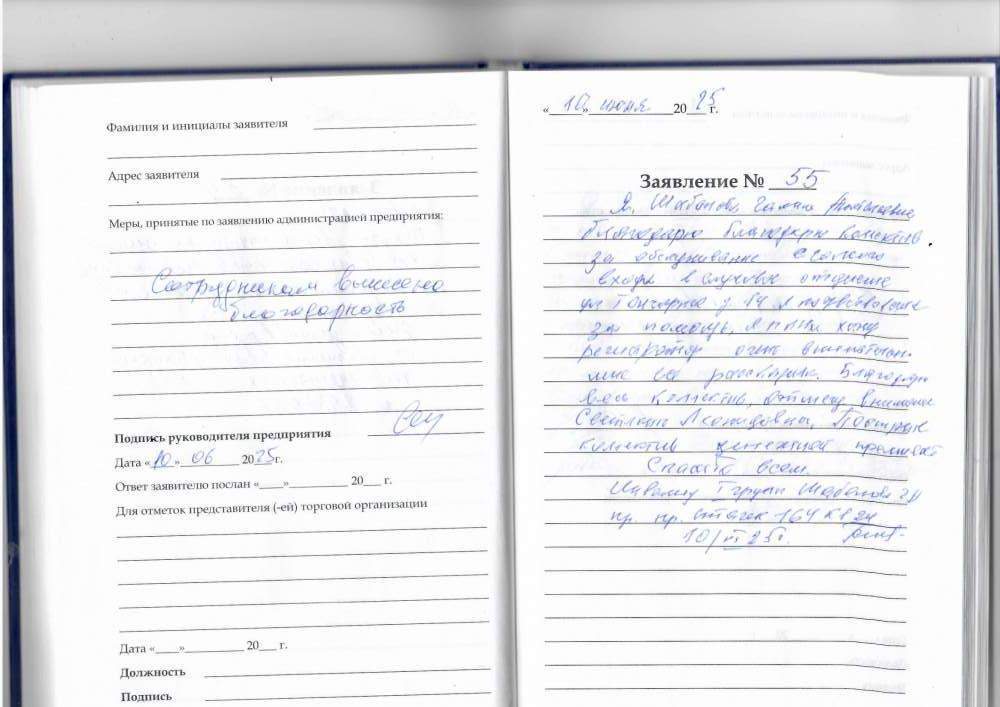 Фамилия и инициалы заявителя
Адрес заявителя
Меры, принятые по заявлению администрацией предприятия:
Сотрудникам вынесена
благодарность
Подпись руководителя предприятия
Дата «10» 06 2025г.
Ответ заявителю послан «____»__________ 20___ г.
Для отметок представителя (-ей) торговой организации
Дата «____»__________ 20___ г.
Должность
Подпись
«10» июня 2025 г.
Заявление № 55
Я, Шабанова Галина
благодарю благодарю коллектив
за обслуживание
входа в слуховое отделение
ул Гончарная д
за помощь, я
регистратор очень
мне все рассказали. Благодарю
весь коллектив,
Светлану Леонидовну,
коллектив денежной премией
Спасибо всем.
Инвалид I группы Шабанова
пр. Стачек 164 кв 24
10/VI 25г.